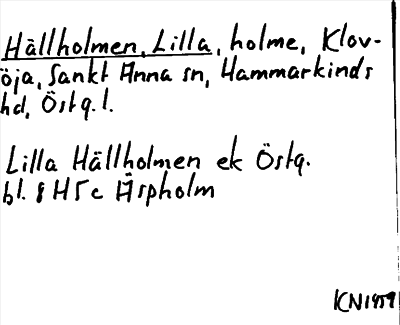 Hällholmen, Lilla, holme, Klov-
öja, Sankt Anna sn, Hammarkinds
hd, Östg. l.
Lilla Hällholmen ek Östg.
bl. 8 H5c Äspholm
KN1959